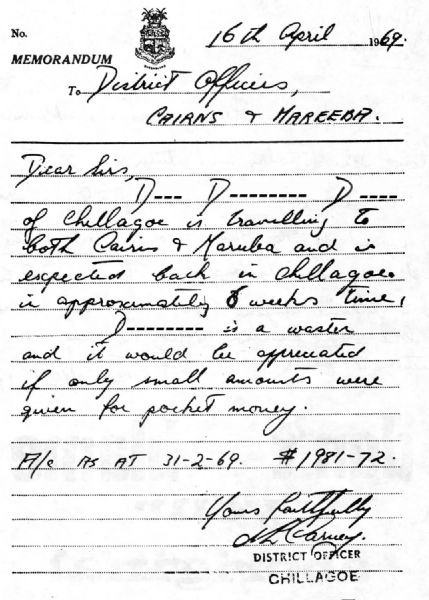 No.
16th April 1969.
MEMORANDUM
QUEENSLAND
To District Officers,
CAIRNS & MAREEBA.
Dear Sirs,
D--- D--------- D----
of Chillagoe is travelling to
both Cairns & Mareeba and is
expected back in Chillagoe
in approximately 6 weeks time,
D--------- is a waster
and it would be appreciated
if only small amounts were
given for pocket money.
A/c AS AT 31-2-69. $1981-72.
Yours faithfully
DISTRICT OFFICER
CHILLAGOE